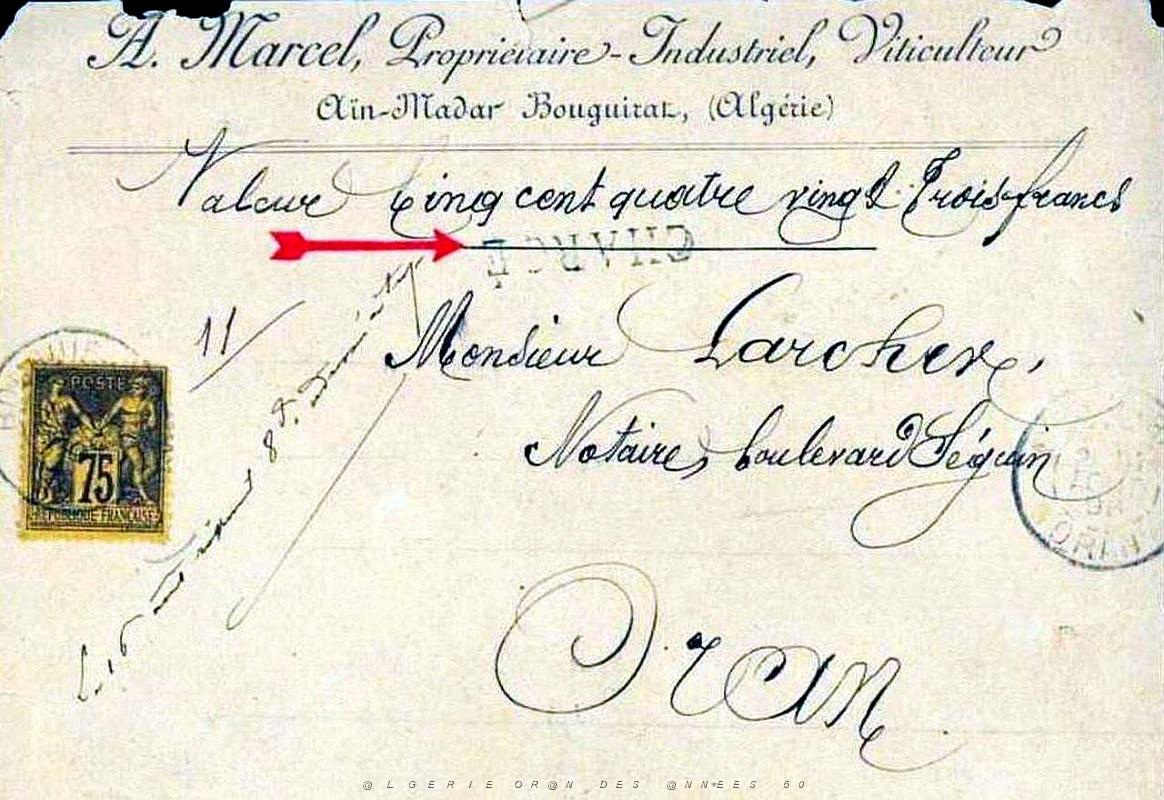 A. Marcel, Propriétaire-Industriel, Viticulteur
Aïn-Madar Bouguirat, (Algérie)
Valeur Cinq cent quatre vingt Trois francs
CHARGÉ
11
Monsieur Larcher,
Notaire, boulevard Séguin
Oran
POSTE
75
REPUBLIQUE FRANÇAISE
ORAN
@LGERIE OR@N DES @NNEES 50